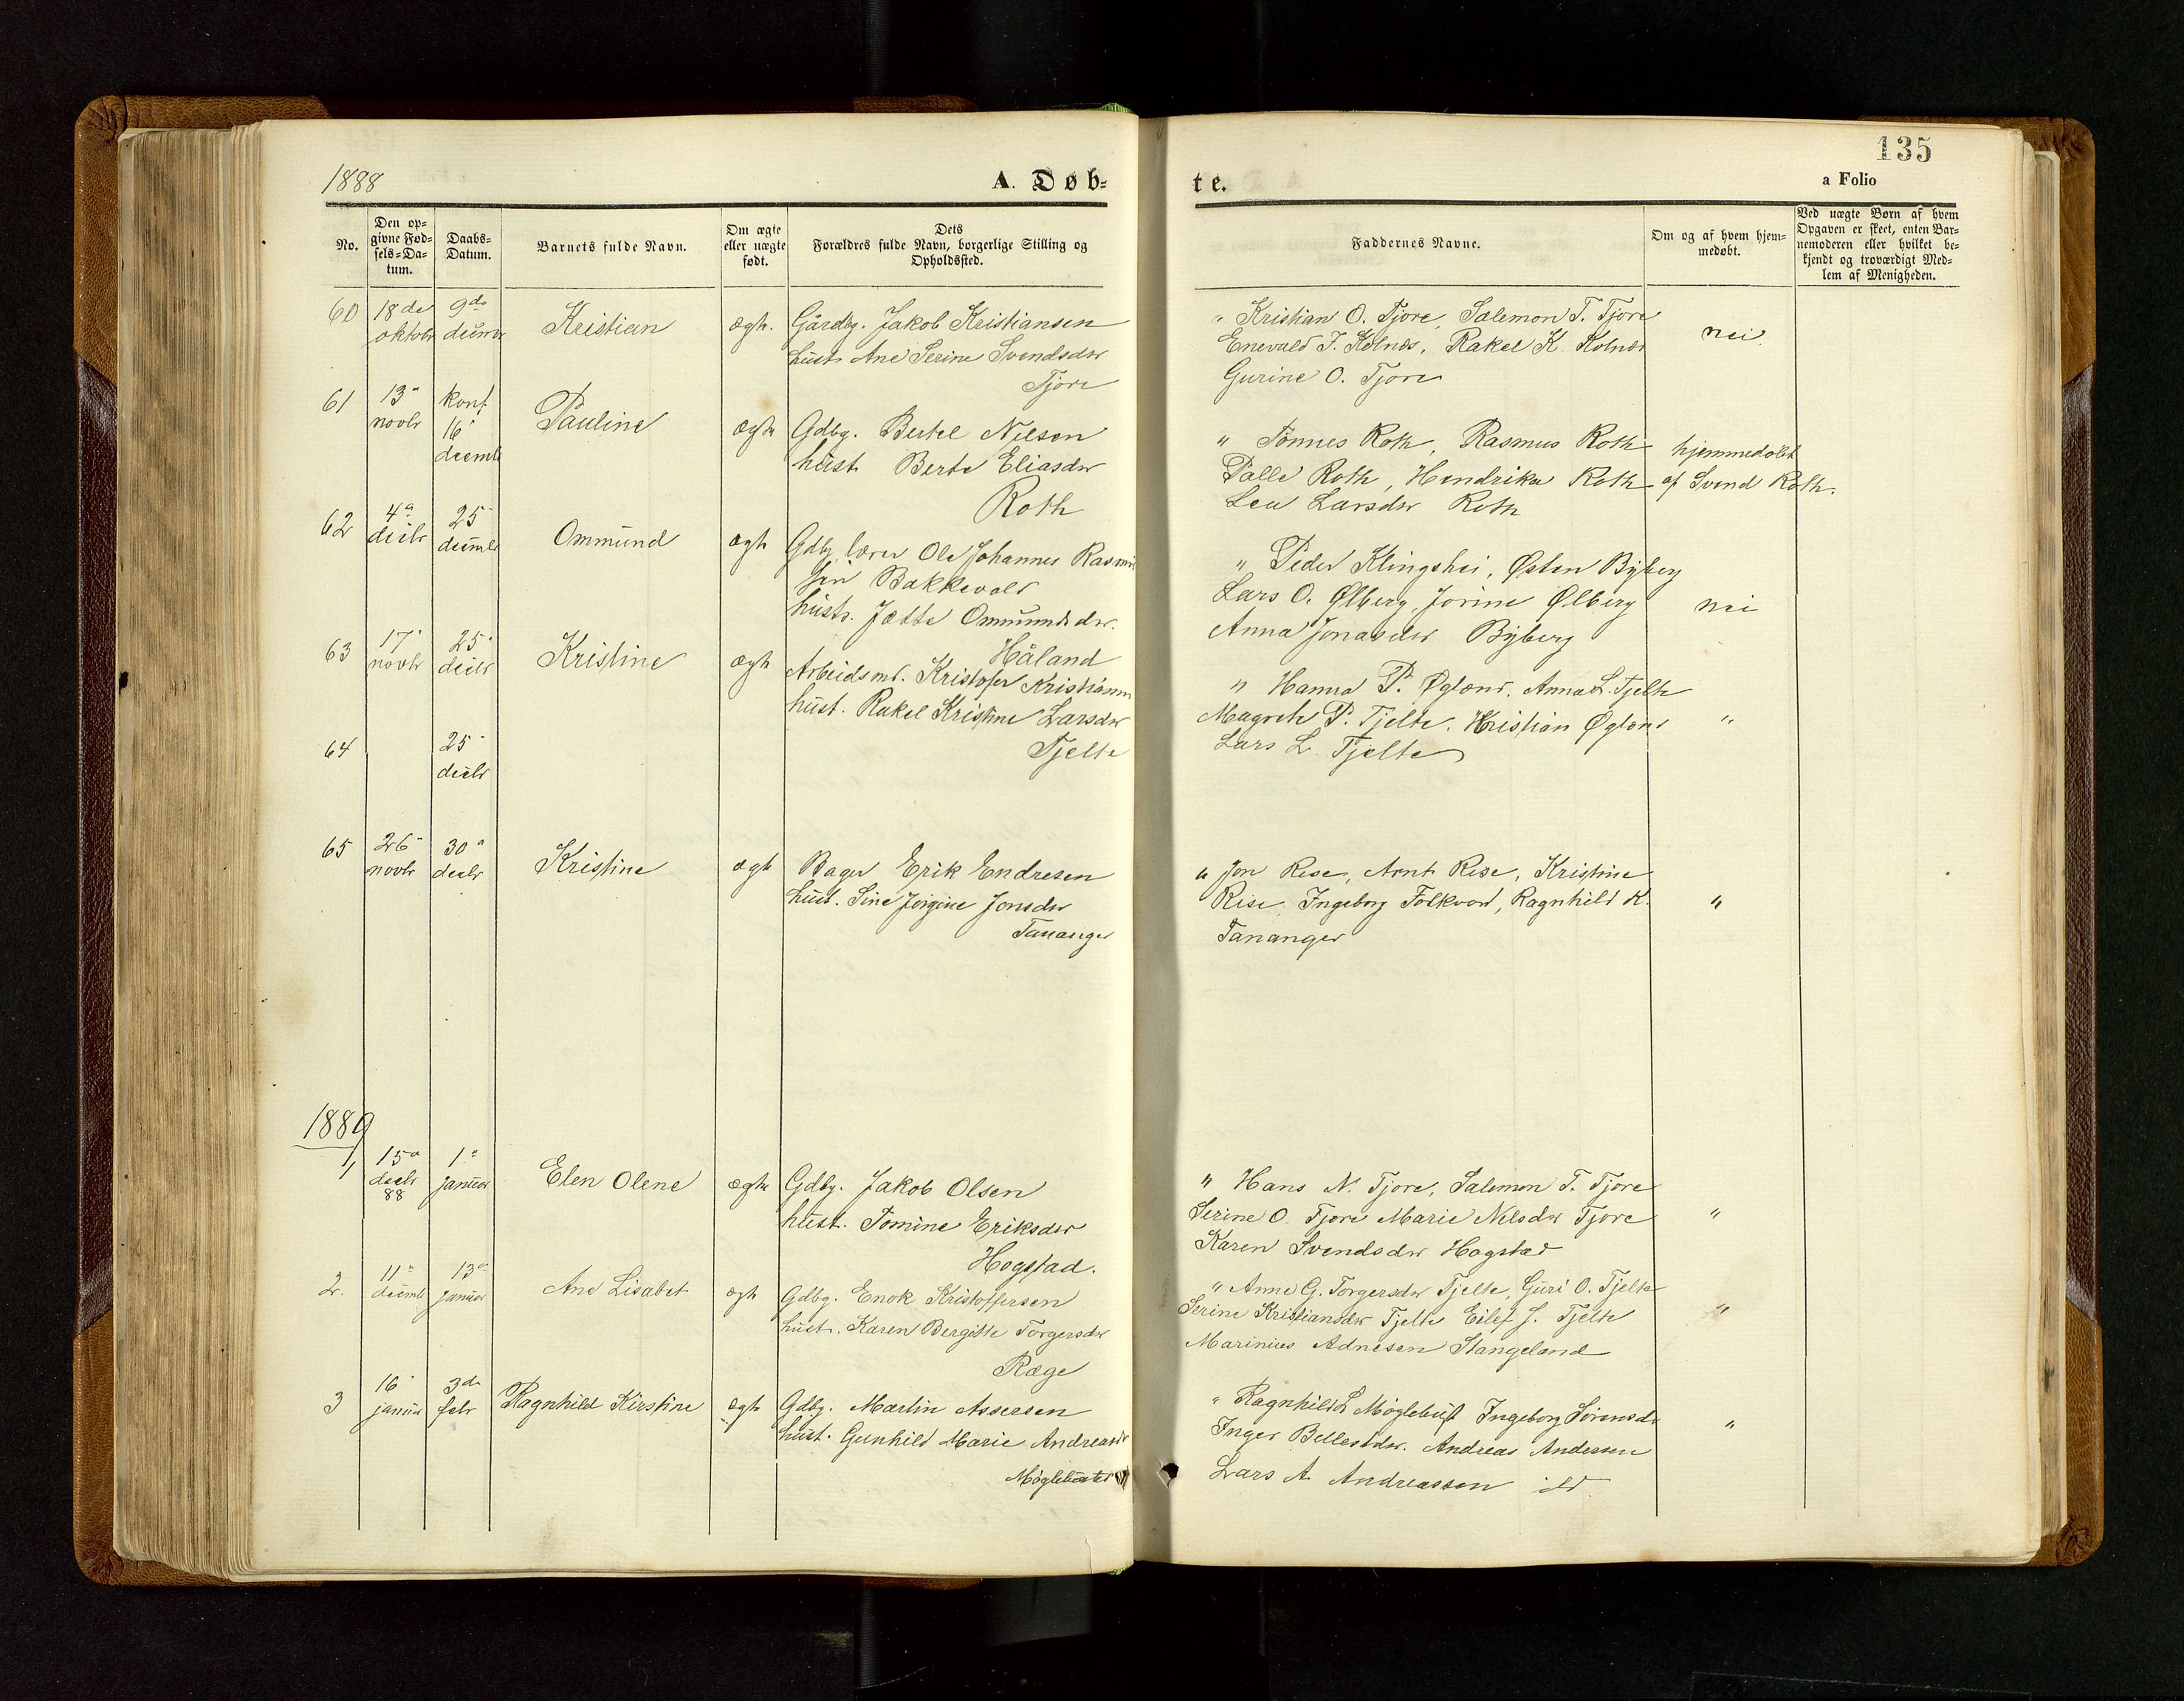 135
1888
A. Døb-
te.
a Folio
No.
Den op-
givne Fød-
sels-Da-
tum.
Daabs-
Datum.
Barnets fulde Navn.
Om ægte
eller uægte
født.
Dets
Forældres fulde Navn, borgerlige Stilling og
Opholdssted.
Faddernes Navne.
Om og af hvem hjem-
medøbt.
Ved uægte Børn af hvem
Opgaven er skeet, enten Bar-
nemoderen eller hvilket be-
kjendt og troværdigt Med-
lem af Menigheden.
60
18de
oktobr
9de
decmbr
Kristian
ægte.
Gårdbg. Jakob Kristiansen
hust. Ane Serine Svendsdtr
Tjore
" Kristian O. Tjore, Salemon T. Tjore
Enevald J. Kolnes, Rakel K. Kolnes
Gurine O. Tjore
nei
61
13"
novbr
konf
16"
decmbr
Pauline
ægte
Gdbg. Bertel Nilsen
hust Berte Eliasdtr
Roth
" Tønnes Roth, Rasmus Roth
Palle Roth, Hendrikke Roth
Lea Larsdtr Roth
hjemmedøbt
af Svend Roth.
62
4"
decbr
25"
decmbr
Ommund
ægte
Gdbg lærer Ole Johannes Rasmus
sen Bakkevold
hustr. Jætte Ommundsdtr.
Håland
" Peder Klingshei, Østen Byberg
Lars O. Ølberg, Jorine Ølberg
Anna Jonasdtr Byberg
nei
63
17"
novbr
25"
decbr
Kristine
ægte
Arbeidsmd. Kristofer Kristiansen
hust. Rakel Kristine Larsdtr
Tjelte
" Hanna P. Øgland. Anna L. Tjelte
Magrete P. Tjelte. Kristian Øgland
Lars L. Tjelte
"
64
25"
decbr
65
26"
novbr
30"
decbr
Kristine
ægte
Bager Erik Endresen
hust. Sine Jørgine Jonsdtr
Tananger
" Jon Rise, Arnt Rise, Kristine
Rise, Ingeborg Folkvord, Ragnhild K.
Tananger
"
1889
1,
15"
decbr
88
1"
januar
Elen Olene
ægte
Gdbg. Jakob Olsen
hust. Tomine Eriksdtr
Hogstad.
" Hans N. Tjore, Salemon T. Tjore
Serine O. Tjore Marie Nelsdtr Tjore
Karen Svendsdtr Hogstad
"
2.
11"
decmbr
13"
januar
Ane Lisabet
ægte
Gdbg. Enok Kristoffersen
hust. Karen Bergitte Torgersdtr
Ræge
" Anne G. Torgersdtr Tjelte, Guri O. Tjelte
Serine Kristiansdtr Tjelte Eilef J. Tjelte
Marinius Adnesen Stangeland
"
3
16"
januar
3de
febr
Ragnhild Kirstine
ægte
Gdbg. Martin Assersen
hust. Gunhild Marie Andreasdtr
Møglebustad
" Ragnhild L Møglebust Ingeborg Sørensdtr
Inger Bellesdtr. Andreas Andersen
Lars A. Andreassen
"